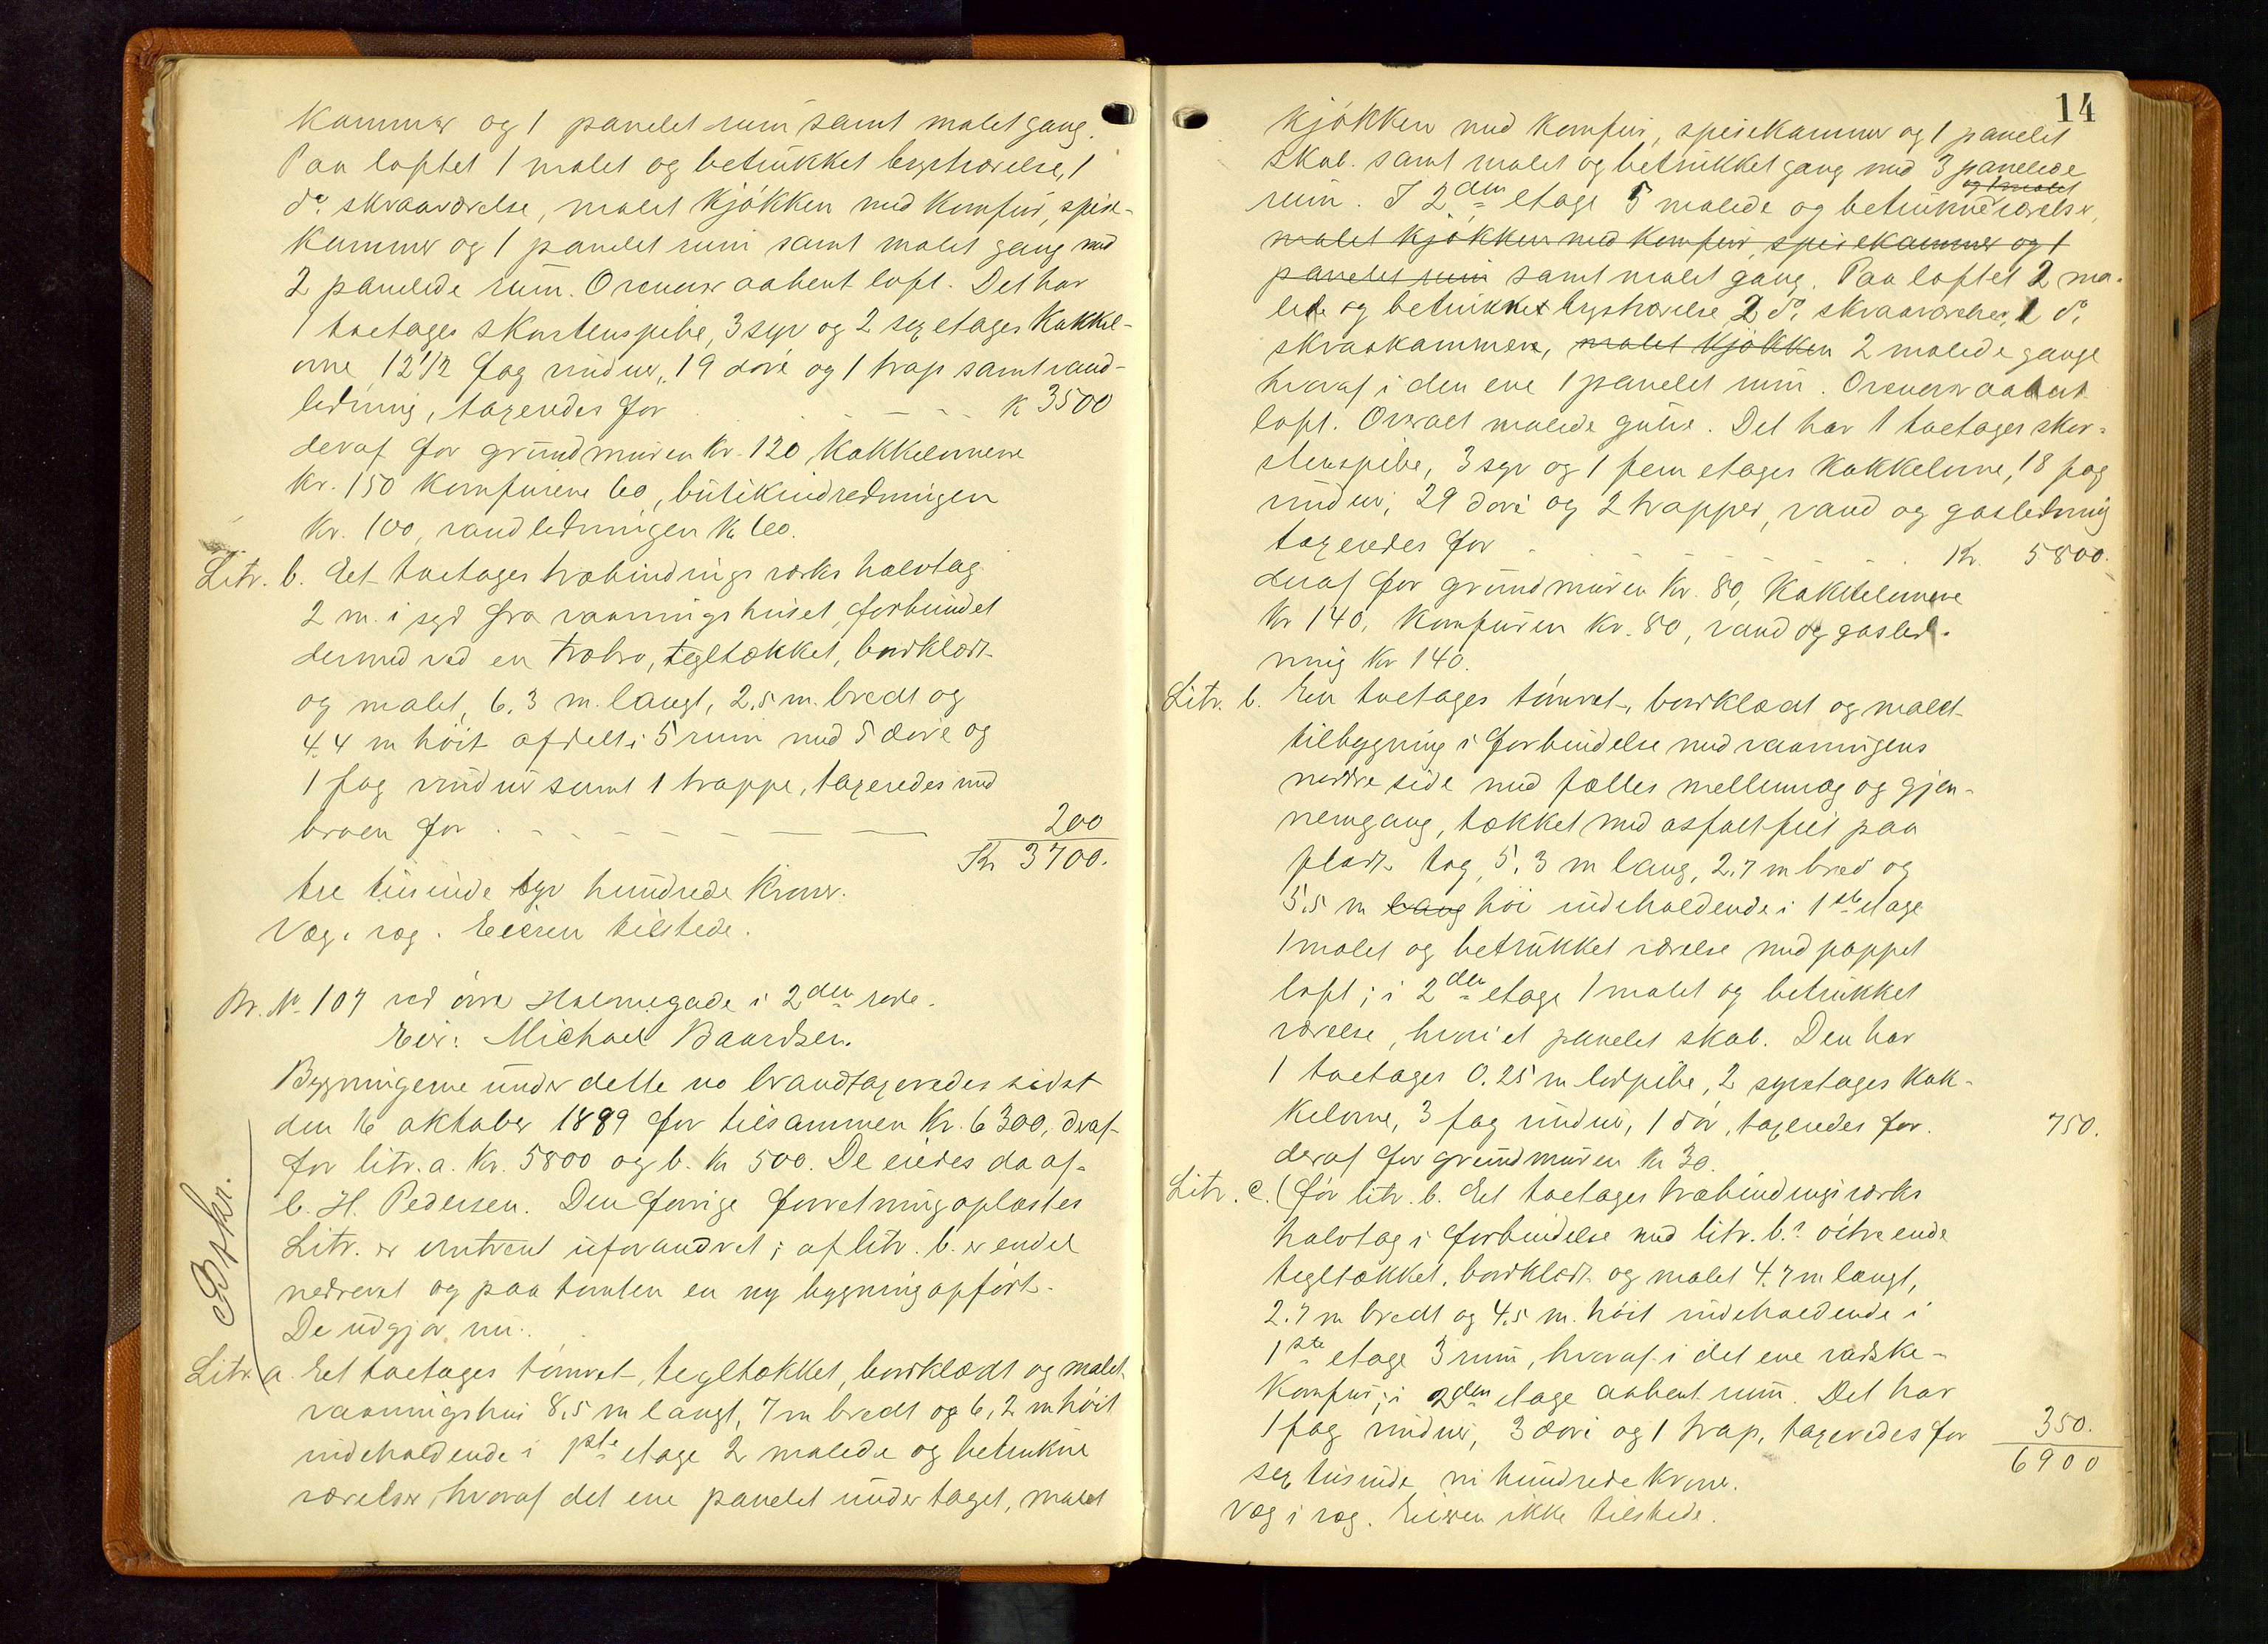 kammer og 1 panelet rum samt malet gang.
Paa loftet 1 malet og betrukket brystværelse, 1
do. skraaværelse, malet kjøkken med komfur, spise-
kammer og 1 panelet rum samt malet gang med
2 panelede rum. Ovenover aabent loft. Det har
1 toetages skorstenspibe, 3 syv og 2 sex etages kakkel-
ovne, 12 1/2 fag vinduer, 19 døre og 1 trap samt vand-
ledning, taxeredes for K 3500
deraf for grundmuren Kr. 120 kakkelovnene
Kr. 150 komfurene 60, butikindredningen
Kr. 100, vandledningen Kr 60.
Litr. b. Et toetages træbindingsværks halvtag
2 m. i syd fra vaaningshuset, forbundet
dermed ved en træbro, tegltækket, bordklædt
og malet, 6.3 m. langt, 2.5 m. bredt og
4.4 m høit afdelt i 5 rum med 5 døre og
1 fag vinduer samt 1 trappe, taxeredes med
broen for 200
Kr 3700.
tre tusinde syv hundrede kroner.
Væg i væg. Eieren tilstede.
Br. No 107 ved øvre Holmegade i 2den rode.
Eier: Michael Baardsen.
Bygningerne under dette no brandtaxeredes sidst
den 16 oktober 1889 for tilsammen Kr. 6300, deraf
for litr. a. Kr. 5800 og b. Kr 500. De eiedes da af
C. H. Pedersen. Den forrige forretning oplæstes
Litr. er omtrent uforandret; af litr. b. er endel
nedrevet og paa tomten en ny bygning opført.
De udgjør nu:
Bskr.
Litr. a. Et toetages tømret, tegltækket, bordklædt og malet
vaaningshus 8.5 m langt, 7 m bredt og 6,2 m høit
indeholdende i 1ste etage 2 malede og betrukne
værelser, hvoraf det ene panelet under taget, malet
14
kjøkken med komfur, spisekammer og 1 panelet
skab. samt malet og betrukket gang med 3 panelede
og 1 malet
rum. I 2den etage 5 malede og betrukne værelser,
malet kjøkken med komfur, spisekammer og 1
panelet rum samt malet gang. Paa loftet 2 ma-
lede og betrukket brystværelse 2 do. skraaværelser, 1 do.
skraakammere, malet kjøkken 2 malede gange
hvoraf i den ene 1 panelet rum. Ovenover aabent
loft. Overalt malede gulve. Det har 1 toetages skor-
stenspibe, 3 syv og 1 fem etages kakkelovne, 18 fag
vinduer, 29 døre og 2 trapper, vand og gasledning
taxeredes for Kr. 5800.
deraf for grundmuren Kr. 80, kakkelovnene
Kr 140, komfuren Kr. 80, vand og gasled-
ning Kr 140.
Litr. b. En toetages tømret, bordklædt og malet
tilbygning i forbindelse med vaaningens
nordre side med fælles mellemvæg og gjen-
nemgang, tækket med asfaltfilt paa
fladt tag, 5.3 m lang, 2.7 m bred og
5.5 m lang høi indeholdende i 1ste etage
1 malet og betrukket værelse med pappet
loft; i 2den etage 1 malet og betrukket
værelse, hvori et panelet skab. Den har
1 toetages 0.25 m lodpibe, 2 syvetages kak-
kelovne, 3 fag vinduer, 1 dør, taxeredes for. 750.
deraf for grundmuren Kr 30.
Litr. c. (før litr. b. Et toetages træbindingsværks
halvtag i forbindelse med litr. b.s østre ende
tegltækket, bordklædt og malet 4.7 m langt,
2.7 m bredt og 4.5 m. høit indeholdende i
1ste etage 3 rum, hvoraf i det ene vadske-
komfur; i 2den etage aabent rum. Det har
1 fag vinduer, 3 døre og 1 trap, taxeredes for 350.
6900
sex tusinde ni hundrede kroner.
Væg i væg. Eieren ikke tilstede.